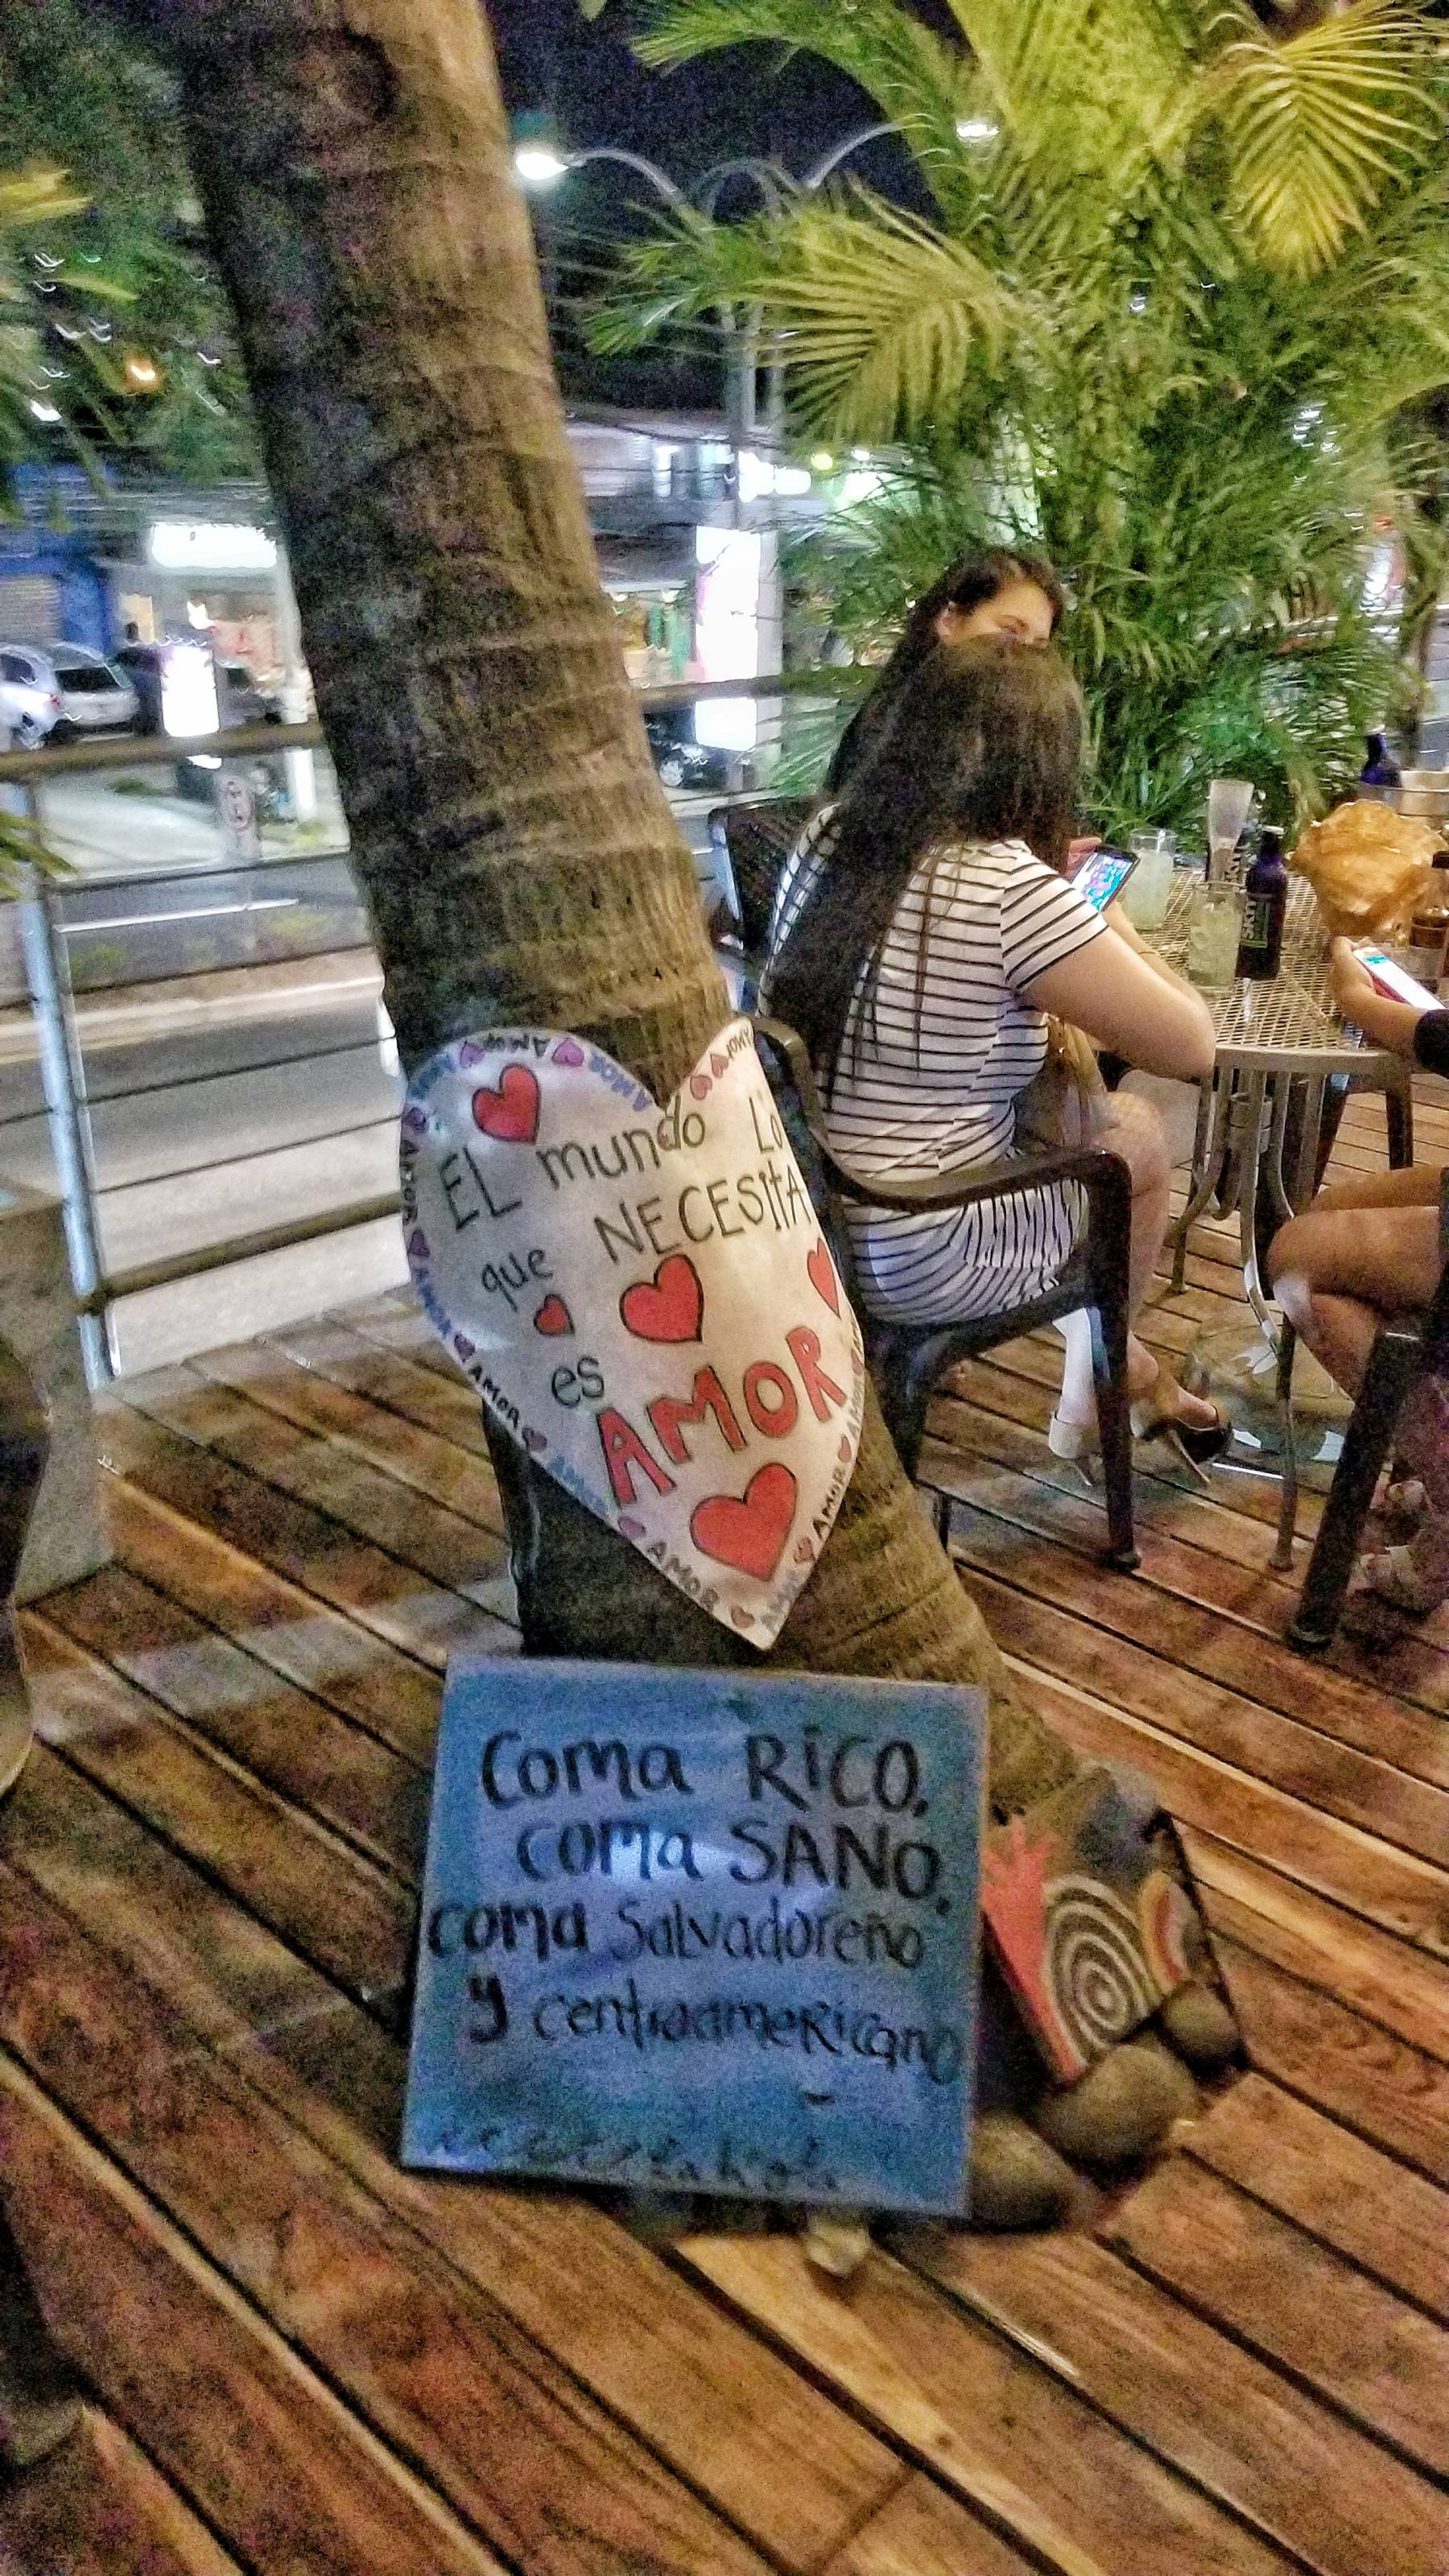 EL mundo Lo
que NECESITA
es
AMOR
AMOR
AMOR
AMOR
AMOR
AMOR
AMOR
AMOR
Coma RiCO,
coma SANO,
coma Salvadoreño
y centroameRicano